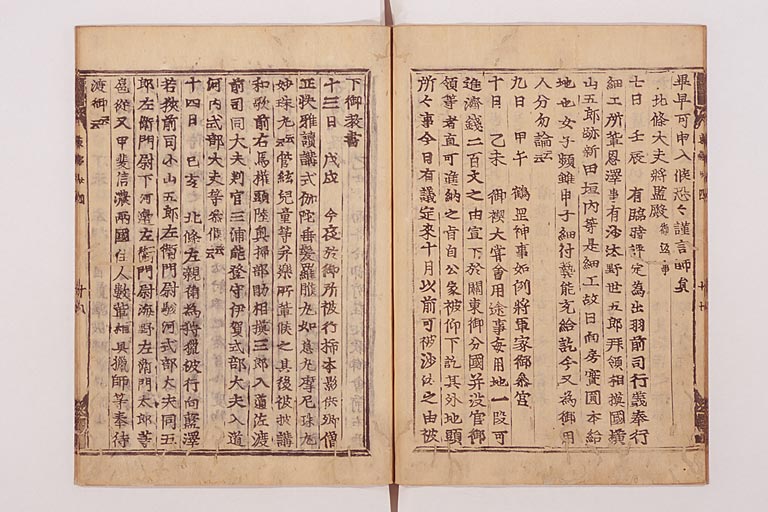 畢早可申入候恐々謹言師兵
北條大夫將監殿
七日 壬辰 有臨時評定為出羽前司行義奉行
細工所輩恩澤事有沙汰野世五郎拜領相摸國橫
山五郎跡新田垣內等是細工故日向房實圓本給
地也女子雖申子細付藝能充給訖今又為御用
人分勿論云云
九日 甲午 鶴罡神事如例將軍家御參宮
十日 乙未 御禊大嘗會用途事每用地一段可
進濟錢二百文之由宣下於關東御分國并沒官御
領等者直可進納之旨自公家被仰下訖其外地頭
所々事今日有議定來十月以前可被沙汰之由被
下御教書
十三日 戊戌 今夜於御所被行柿本影供御僧
正快雅讀講式伽陀垂髮羅睺丸如意丸摩尼珠丸
妙珠丸云云管絃兒童等并樂所輩候之其後被披講
和歌前右馬權頭陸奧掃部助相摸三郎入道佐渡
前司同大夫判官三浦能登守伊賀式部大夫入道
河內式部大夫等參候云云
十四日 己亥 北條左親衛為狩獵被行向藍澤
若狹前司小山五郎左衛門尉駿河式部大夫同五
郎左衛門尉下河邊左衛門尉海野左衛門太郎等
扈從又甲斐信濃兩國住人數輩相具獵師等奉待
渡御云云
東鑑
十七
東鑑
十八